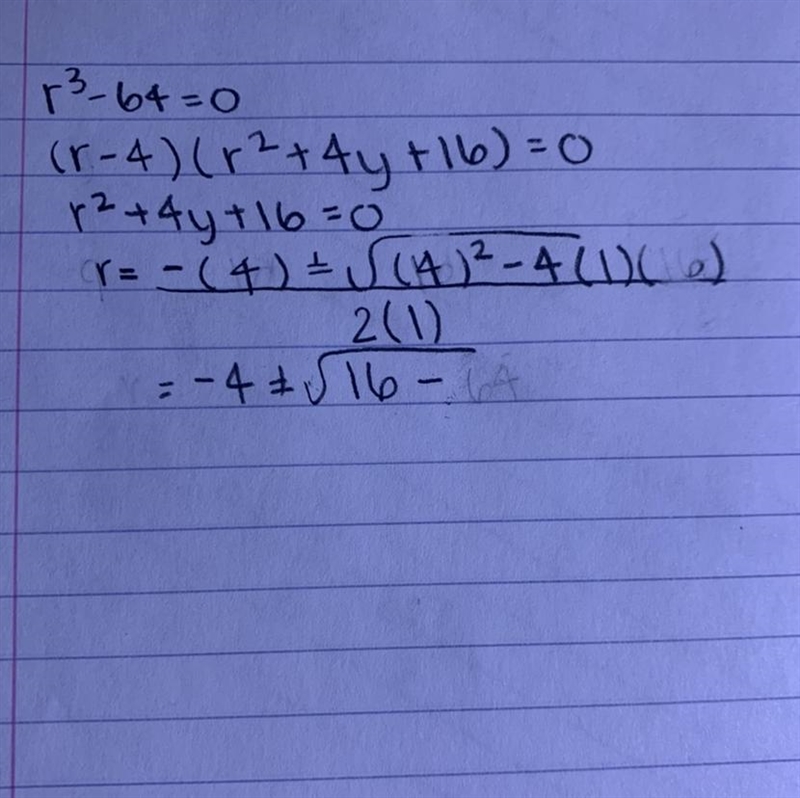 r³-64=0
(r-4)(r²+4y+16)=0
r²+4y+16=0
r= -(4)±√(4)²-4(1)(16)
2(1)
= -4±√16-64